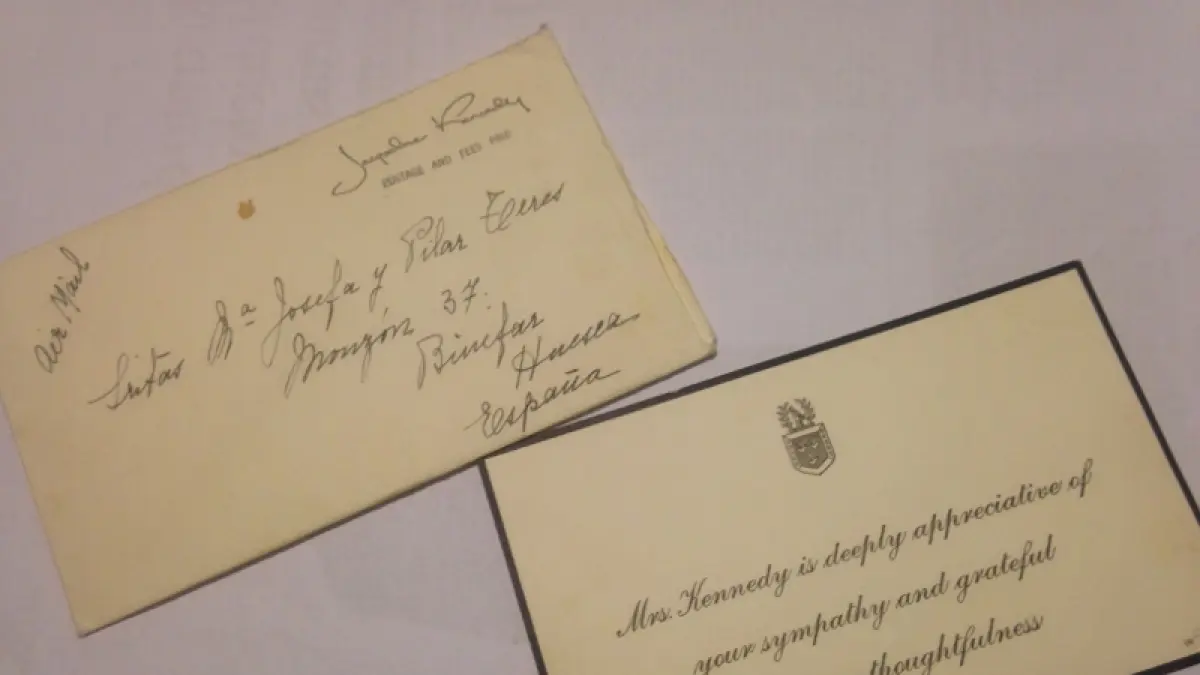 Jacqueline Kennedy
POSTAGE AND FEES PAID
Air Mail
Sritas Mª Josefa y Pilar Teres
Monzón 37.
Binifar
Huesca
España
Mrs. Kennedy is deeply appreciative of
your sympathy and grateful
thoughtfulness